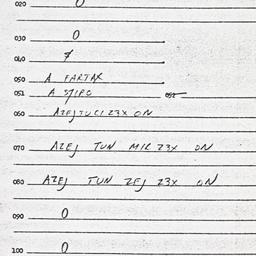 020 0
030 0
040
050 A FARTAK
051 A STIRO 052
060 AZEJ TUCI Z3X ON
070 AZEJ TUN MIR Z3X ON
080 AZEJ TUN ZEJ Z3X ON
090 0
100 0